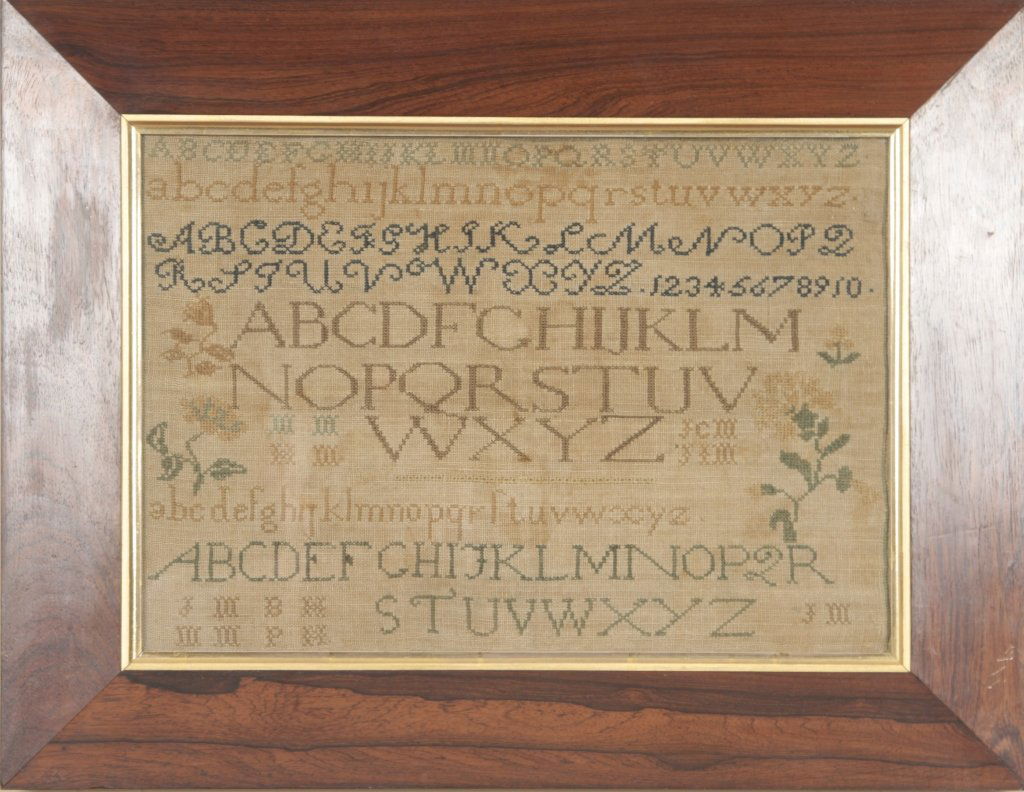 ABCDEFGHIJKLMNOPQRSTUVWXYZ.
abcdefghijklmnopqrstuvwxyz.
ABCDEFGHIKLMNOPQ
RSTUVWXYZ. 12345678910.
ABCDFGHIJKLM
NOPQRSTUV
M M WXYZ JCM
H M JHM
abcdefghijklmnopqrſtuvwxyz.
ABCDEFGHIJKLMNOPQR
J M B H STUVWXYZ J M
M M P H